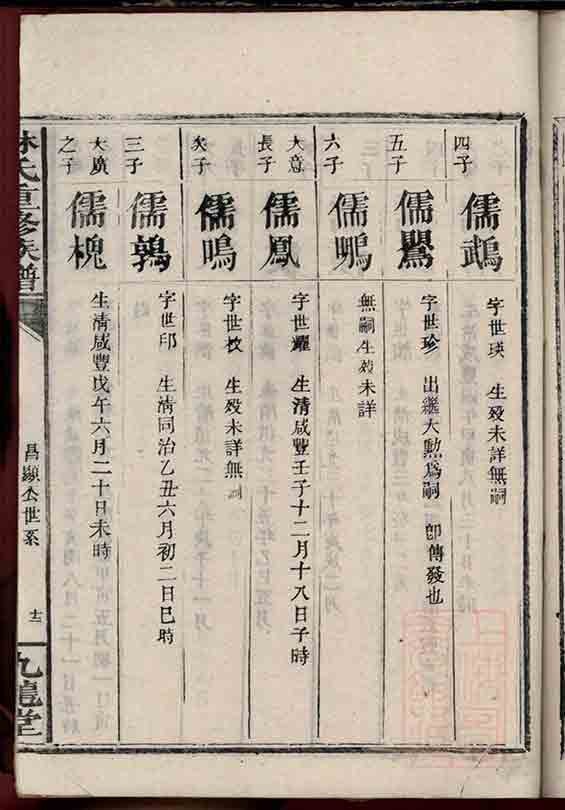 四子 儒鵡 字世瑛 生殁未詳無嗣
五子 儒鷽 字世珍 出繼大勲爲嗣 即傳發也
六子 儒鵬 無嗣生殁未詳
大意長子 儒鳳 字世耀 生清咸豐壬子十二月十八日子時
次子 儒鳴 字世枚 生殁未詳無
三子 儒鶉 字世印 生清同治乙丑六月初二日巳時
大廣之子 儒槐 生清咸豐戊午六月二十日未時
林氏重修族譜 昌顯公世系 十二 九龍堂